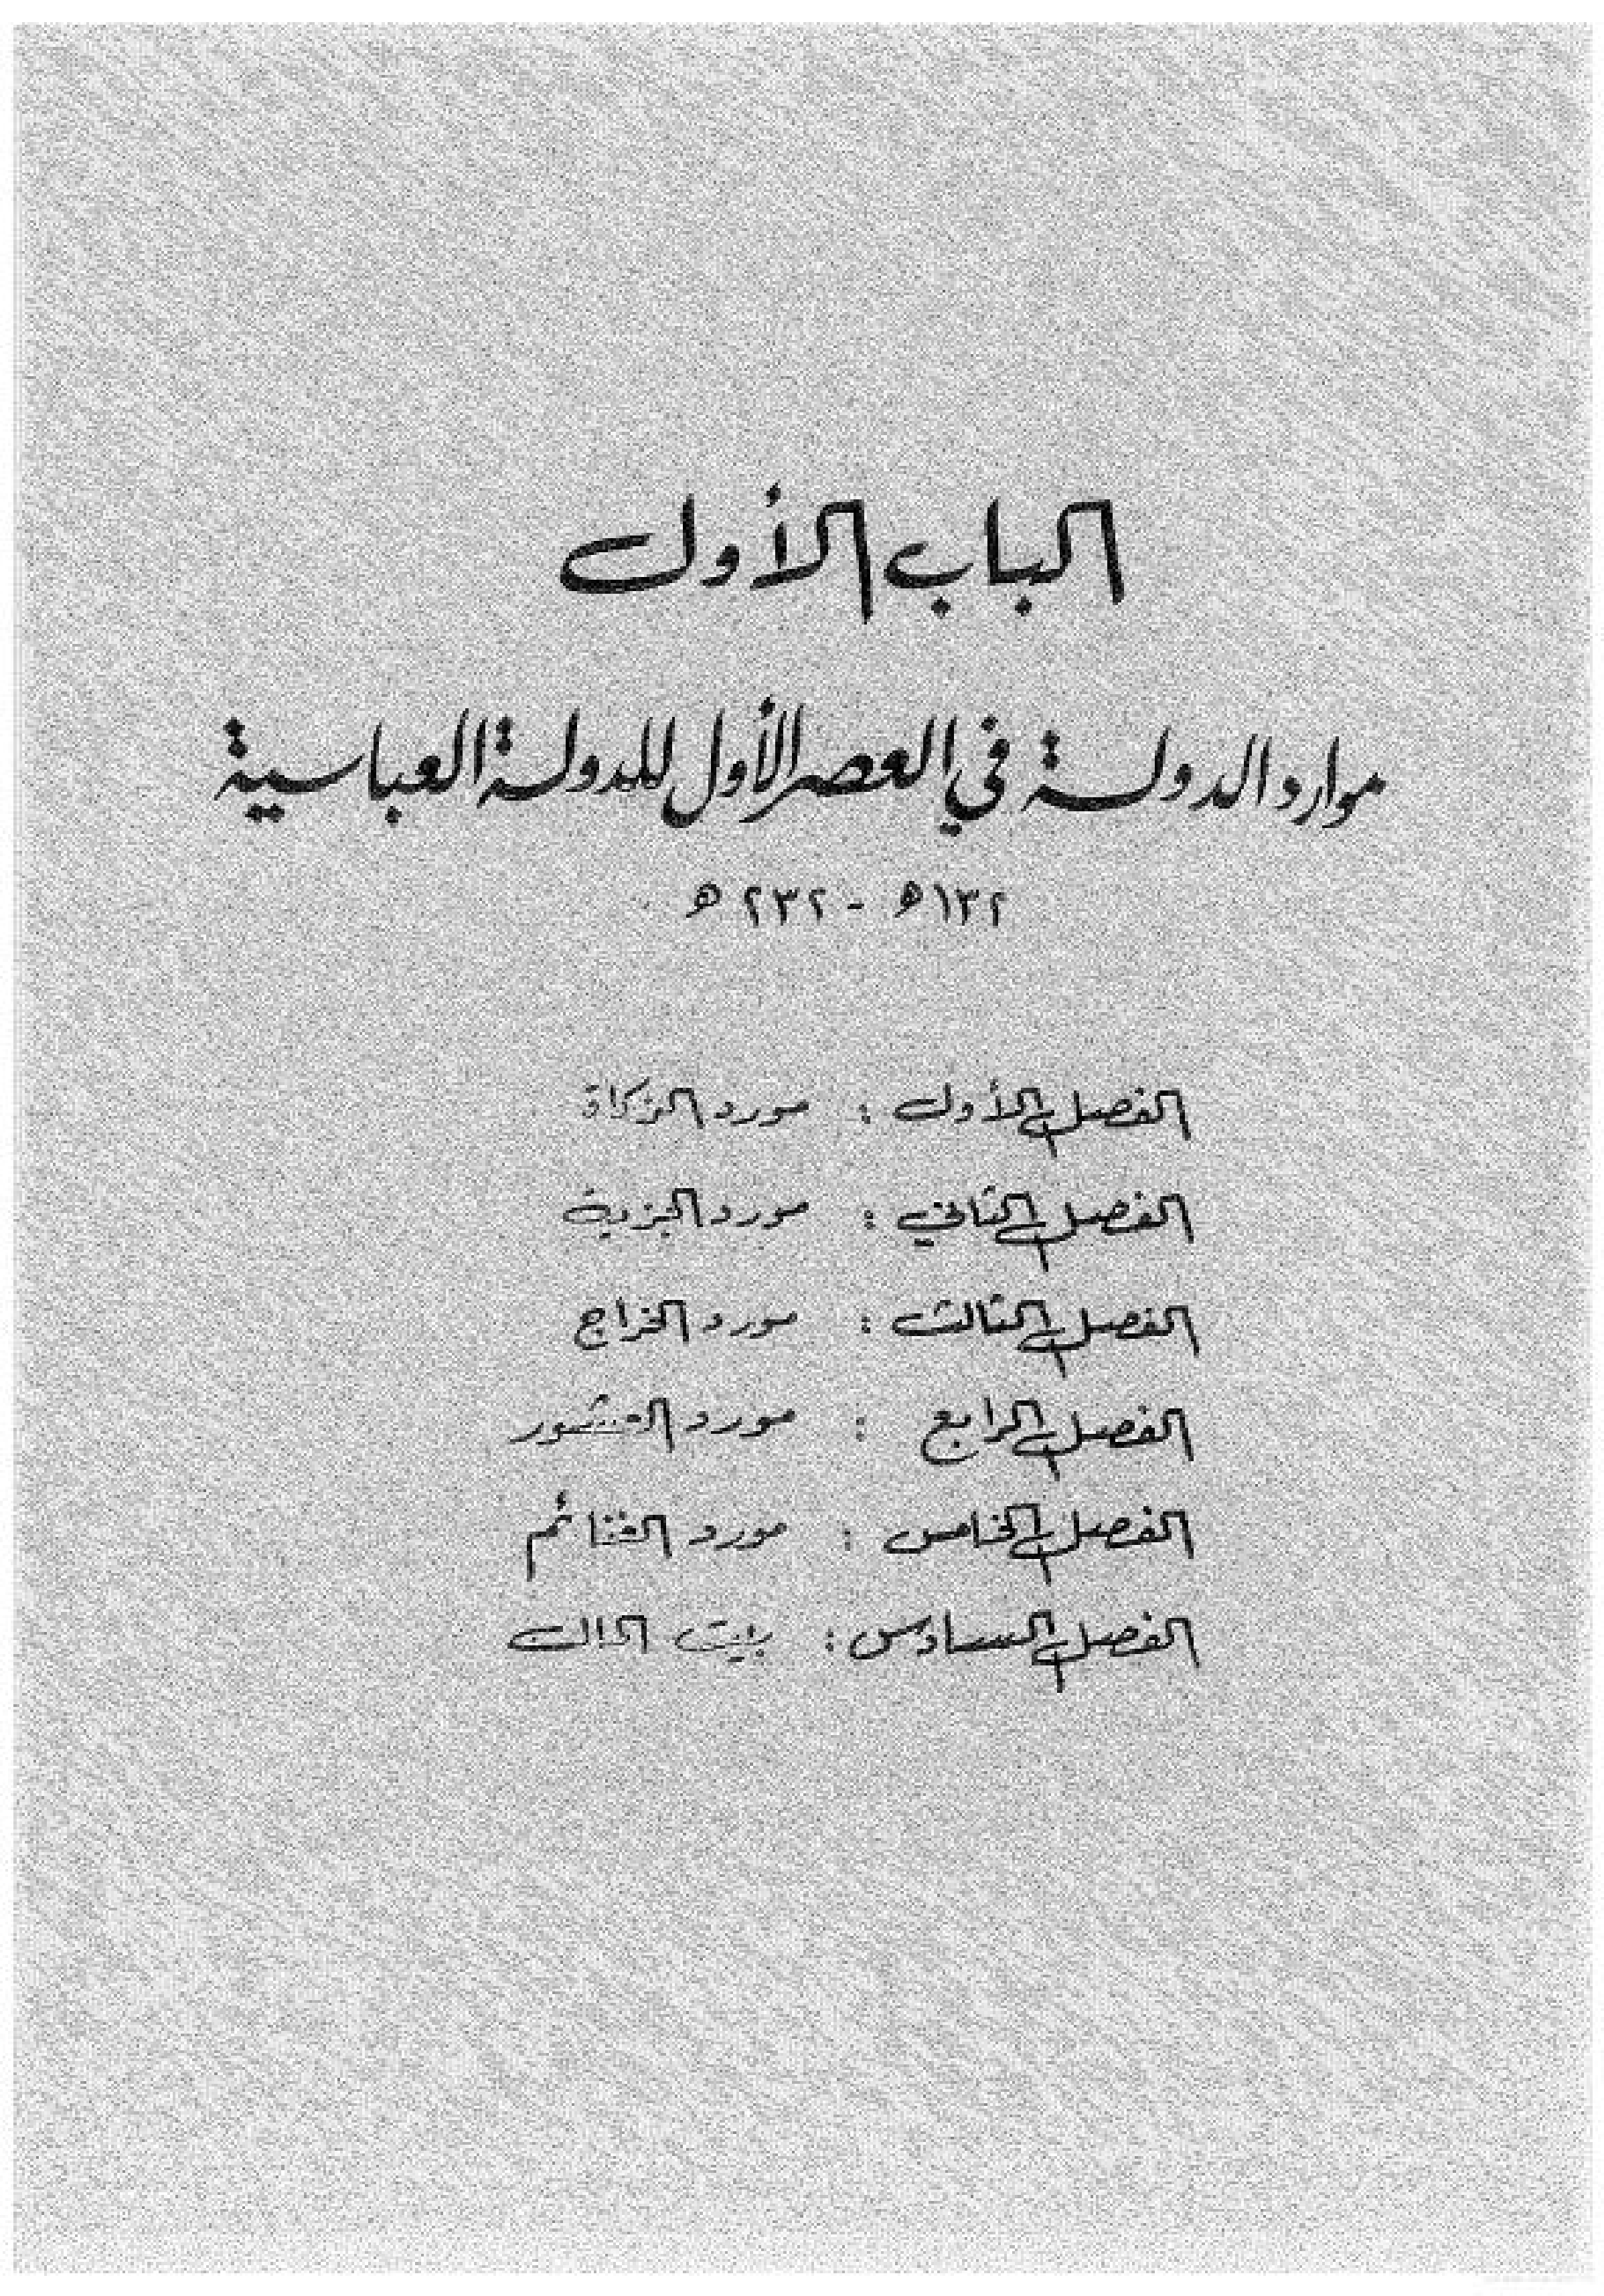 الباب الأول
موارد الدولة في العصر الأول للدولة العباسية
١٣٢ ه - ٢٣٢ ه
الفصل الأول : مورد الزكاة
الفصل الثاني : مورد الجزية
الفصل الثالث : مورد الخراج
الفصل الرابع : مورد العشور
الفصل الخامس : مورد الغنائم
الفصل السادس : بيت المال